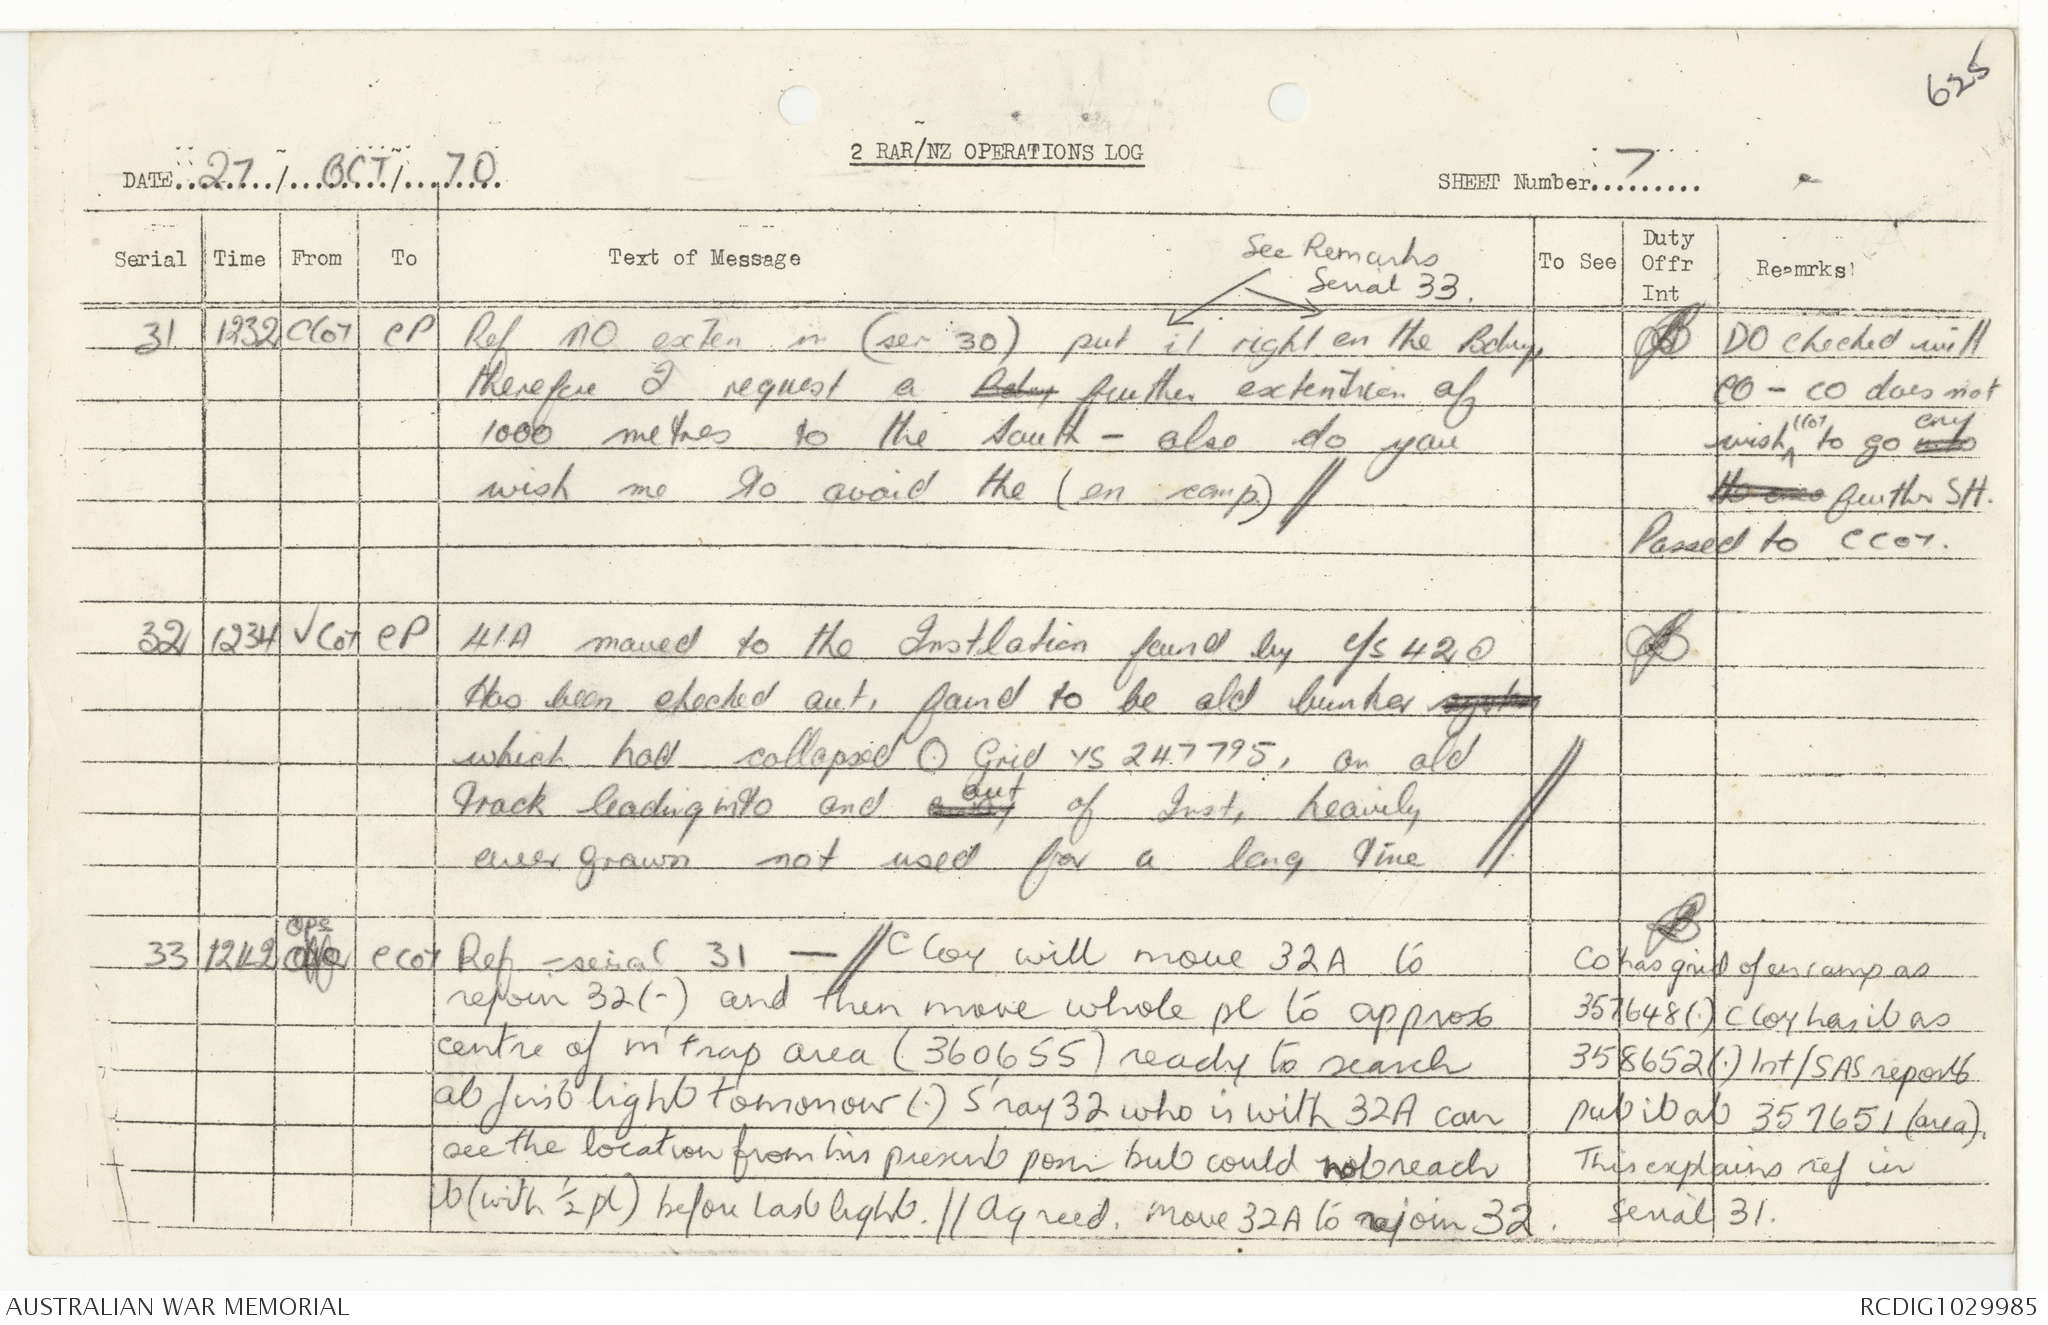 625
2 RAR/NZ OPERATIONS LOG
DATE..27../..OCT../..70..
SHEET Number...7...
Serial Time From To Text of Message To See Duty Offr Int Reamrks
See Remarks
Serial 33.
31 1232 CCoy CP Ref NO exten in (ser 30) put it right on the Bdry, DO checked with
therefore I request a Bdry further extention of CO - CO does not
1000 metres to the South - also do you wish CCoy to go any
wish me to avoid the (en camp) // further SH.
Passed to CCoy.
32 1234 VCoy CP 41A moved to the Instlation found by c/s 42
Has been checked out, found to be old bunker
which had collapsed Grid YS 247795, on old
track leading into and out of Inst, heavily
over grown not used for a long time //
33 1242 Ops CCoy Ref serial 31 — // C Coy will move 32A to CO has grid of en camp as
rejoin 32(-) and then move whole pl to approx 357648(.) C Coy has it as
centre of m'trap area (360655) ready to search 358652(.) Int/SAS reports
at first light tomorrow (.) S'ray 32 who is with 32A can put it at 357651 (area).
see the location from his present posn but could not reach This explains ref in
it (with ½ pl) before last light. // Agreed. Move 32A to rejoin 32. Serial 31.
AUSTRALIAN WAR MEMORIAL
RCDIG1029985